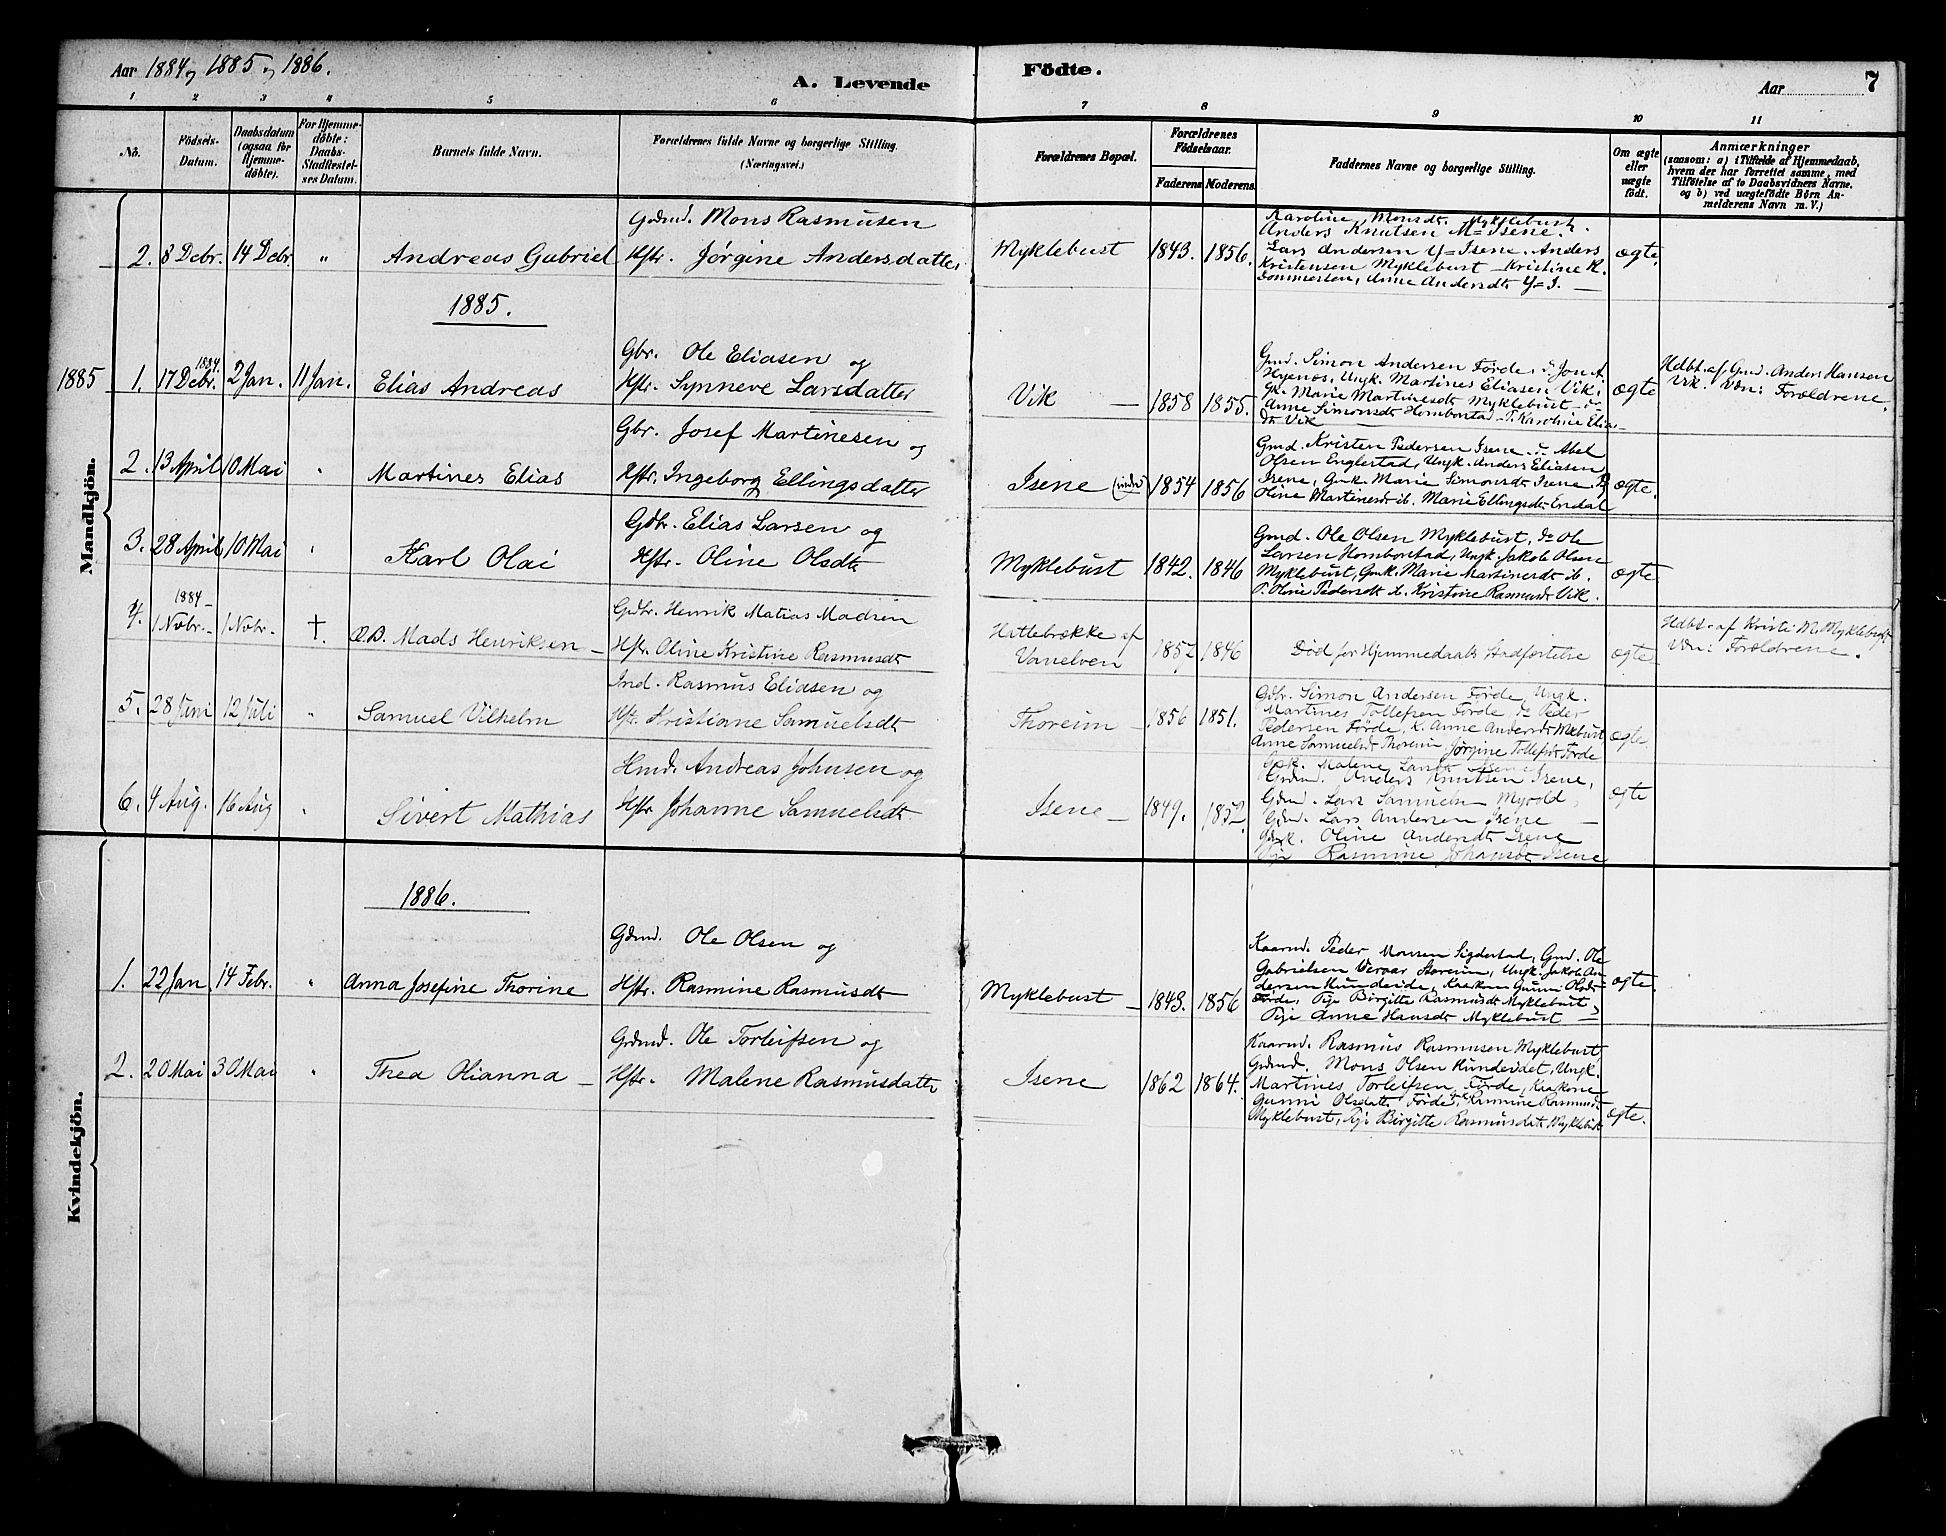 Aar 1884, 1885, 1886.
A. Levende Födte.
Aar 7
1 2 3 4 5 6 7 8 9 10 11
No.
Födsels-Datum.
Daabsdatum (ogsaa for Hjemme-döbte).
For Hjemme-döbte: Daabs-Stadfæstel-ses Datum.
Barnets fulde Navn.
Forældrenes fulde Navne og borgerlige Stilling.
(Næringsvei.)
Forældrenes Bopæl.
Forældrenes Födselsaar.
Faderens Moderens
Faddernes Navne og borgerlige Stilling.
Om ægte eller uægte födt.
Anmærkninger
(saasom: a) i Tilfælde af Hjemmedaab,
hvem der har forrettet samme, med
Tilföielse af to Daabsvidners Navne,
og b) ved uægtefödte Börn An-
melderens Navn m. V.)
Mandkjön.
2. 8 Debr. 14 Debr. " Andreas Gabriel
Gdmd. Mons Rasmusen
Hstr. Jørgine Andersdatter
Myklebust 1843. 1856.
Karoline Monsdt. Myklebust.
Anders Knutsen M= Isene.
Lars Andersen Y= Isene. Anders
Kristensen Myklebust - Kristine R.
Anne Andersdt Y= I. -
ægte.
1885.
1885
1. 17 Debr. 1884. 2 Jan. 11 Jan. Elias Andreas
Gbr. Ole Eliasen og
Hstr. Synneve Larsdatter
Vik - 1858 1855.
Gmd. Simon Andersen Førde, Jon A.
Hyenæs, Ungk. Martines Eliasen Vik.
Gk. Marie Martinesdt Myklebust -
Anne Simonsdt Homborstad - P. Karoline Elias-
dt Vik -
ægte
Hdbt. af Gmd. Anders Hansen
Vik. Vdn: Forældrene.
2. 13 April 10 Mai " Martines Elias
Gbr. Josef Martinesen og
Hstr. Ingeborg Ellingsdatter
Isene (indre) 1854 1856
Gmd. Kristen Pedersen Isene Abel
Olsen Englestad, Ungk. Anders Eliasen
Isene, Gmk. Marie Simonsdt Isene. P
Oline Martinesdt ib. Marie Ellingsdt Endal
ægte.
3. 28 April 10 Mai " Karl Olai
Gdbr. Elias Larsen og
Hstr. Oline Olsdt
Myklebust 1842. 1846
Gmd. Ole Olsen Myklebust, do Ole
Larsen Homborstad, Ungk. Jakob Olsen
Myklebust, Gmk. Marie Martinesdt ib.
P. Oline Pedersdt Kristine Rasmusdt Vik.
ægte
4. 1884 - 1 Nobr. - 1 Nobr. - † Mads Henriksen -
Gdbr. Henrik Matias Madsen
Hstr. Oline Kristine Rasmusdt
Hettebrække af
Vanelven
1857 1846
Död før Hjemmedaabs Stadfæstelse
ægte
Hdbt. af Kristi M. Myklebust
Vdn: Forældrene.
5. 28 Juni 12 Juli " Samuel Vilhelm
Ind. Rasmus Eliasen og
Hstr. Kristiane Samuelsdt
Thoreim - 1856 1851.
Gdbr. Simon Andersen Førde, Ungk.
Martines Tollefsen Førde, do Peder
Pedersen Førde, K. Anne Andersdt Mkbust,
Anne Samuelsdt Thoreim, Jørgine Tollefsdt Førde
ægte
6. 4 Aug. 16 Aug " Sivert Mathias
Hmd. Andreas Johnsen og
Hstr Johanne Samuelsdt
Isene - 1849. 1852.
Gmk. Malene Larsdt
Grdmd. Anders Knutsen Isene,
Gdmd. Lars Samuelsn Myrold,
Gdmd. Lars Andersen Isene -
Gdmk. Oline Andersdt Isene
Pige Rasmine Johansdt Isene
ægte
Kvindekjön.
1886.
1. 22 Jan 14 Febr. " Anna Josefine Thorine
Gdmd. Ole Olsen og
Hstr. Rasmine Rasmusdt
Myklebust - 1843. 1856
Kaarmd. Peder Monsen Sigdestad, Gmd. Ole
Gabrielsen Veraar Storeim, Ungk. Jakob An-
dersen Hundeide, Kaarkone Gunni Olsdt
Førde, Pige Birgitte Rasmusdt Myklebust,
Pige Anne Hansdt Myklebust -
ægte.
2. 20 Mai 30 Mai " Thea Olianna -
Grdmd. Ole Torleifsen og
Hstr. Malene Rasmusdatter
Isene 1862 1864.
Kaarmd. Rasmus Rasmusen Myklebust,
Grdmd. Mons Olsen Hundeidet, Ungk.
Martines Torleifsen Førde, Kaarkone
Gunni Olsdatter Førde, Rasmine Rasmusdt
Myklebust, Pige Birgitte Rasmusdatter Myklebust
ægte.